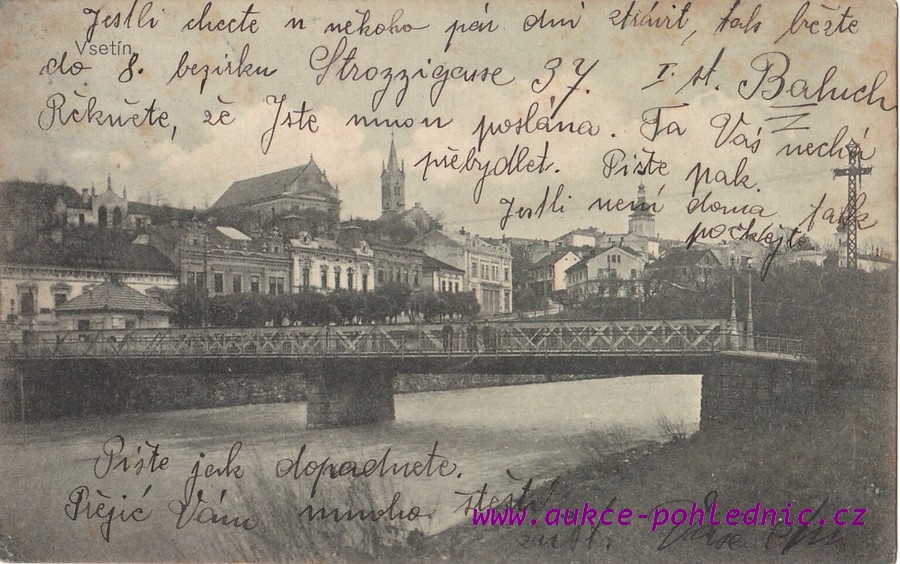 Jestli chcete u někoho pár dní ztrávit, tak běžte
Vsetín
do 8. bezirku Strozzigasse 37. I. st. Baluch
Řekněte, že Jste mnou poslána. Ta Vás nechá
přebydlet. Pište pak.
Jestli není doma tak
počkejte
Pište jak dopadnete.
Přejíc Vám mnoho štěstí
www.aukce-pohlednic.cz
Vaše